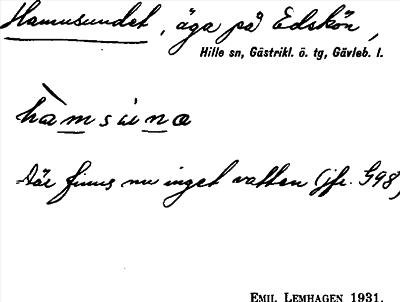 Hamusundet, äga på Edskön,
Hille sn, Gästrikl. ö. tg, Gävleb. l.
hàmsunə
där finns nu inget vatten (jfr. S98)
EMIL LEMHAGEN 1931.